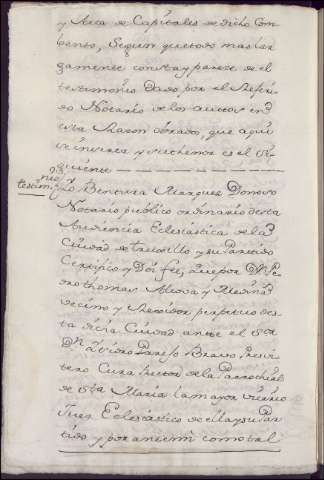 y Arca de Capitales de dicho Com
bento, Segun que todo mas lar
gamente consta y parece de el
testimonio dado por el Referi
do Notario de los autos en
esta Razon obrado, que aqui
se inserta y su thenor es el si
guiente
testim.nio
Bentura Marquez Donoso
Notario publico ordinario desta
Audiencia Eclesiastica de la
Ciudad de truxillo y su Partido
Certifico y Doi fee, que por Dn Pe
dro thomas
vecino y Rexidor perpetuo des
ta dicha Ciudad ante el Sor
Dn Paredes Bravo Presvi
tero Cura Rector de la Parrochial
de Sta Maria la mayor vicario
Juez Eclesiastico de ella y su Par
tido y por antemi como tal